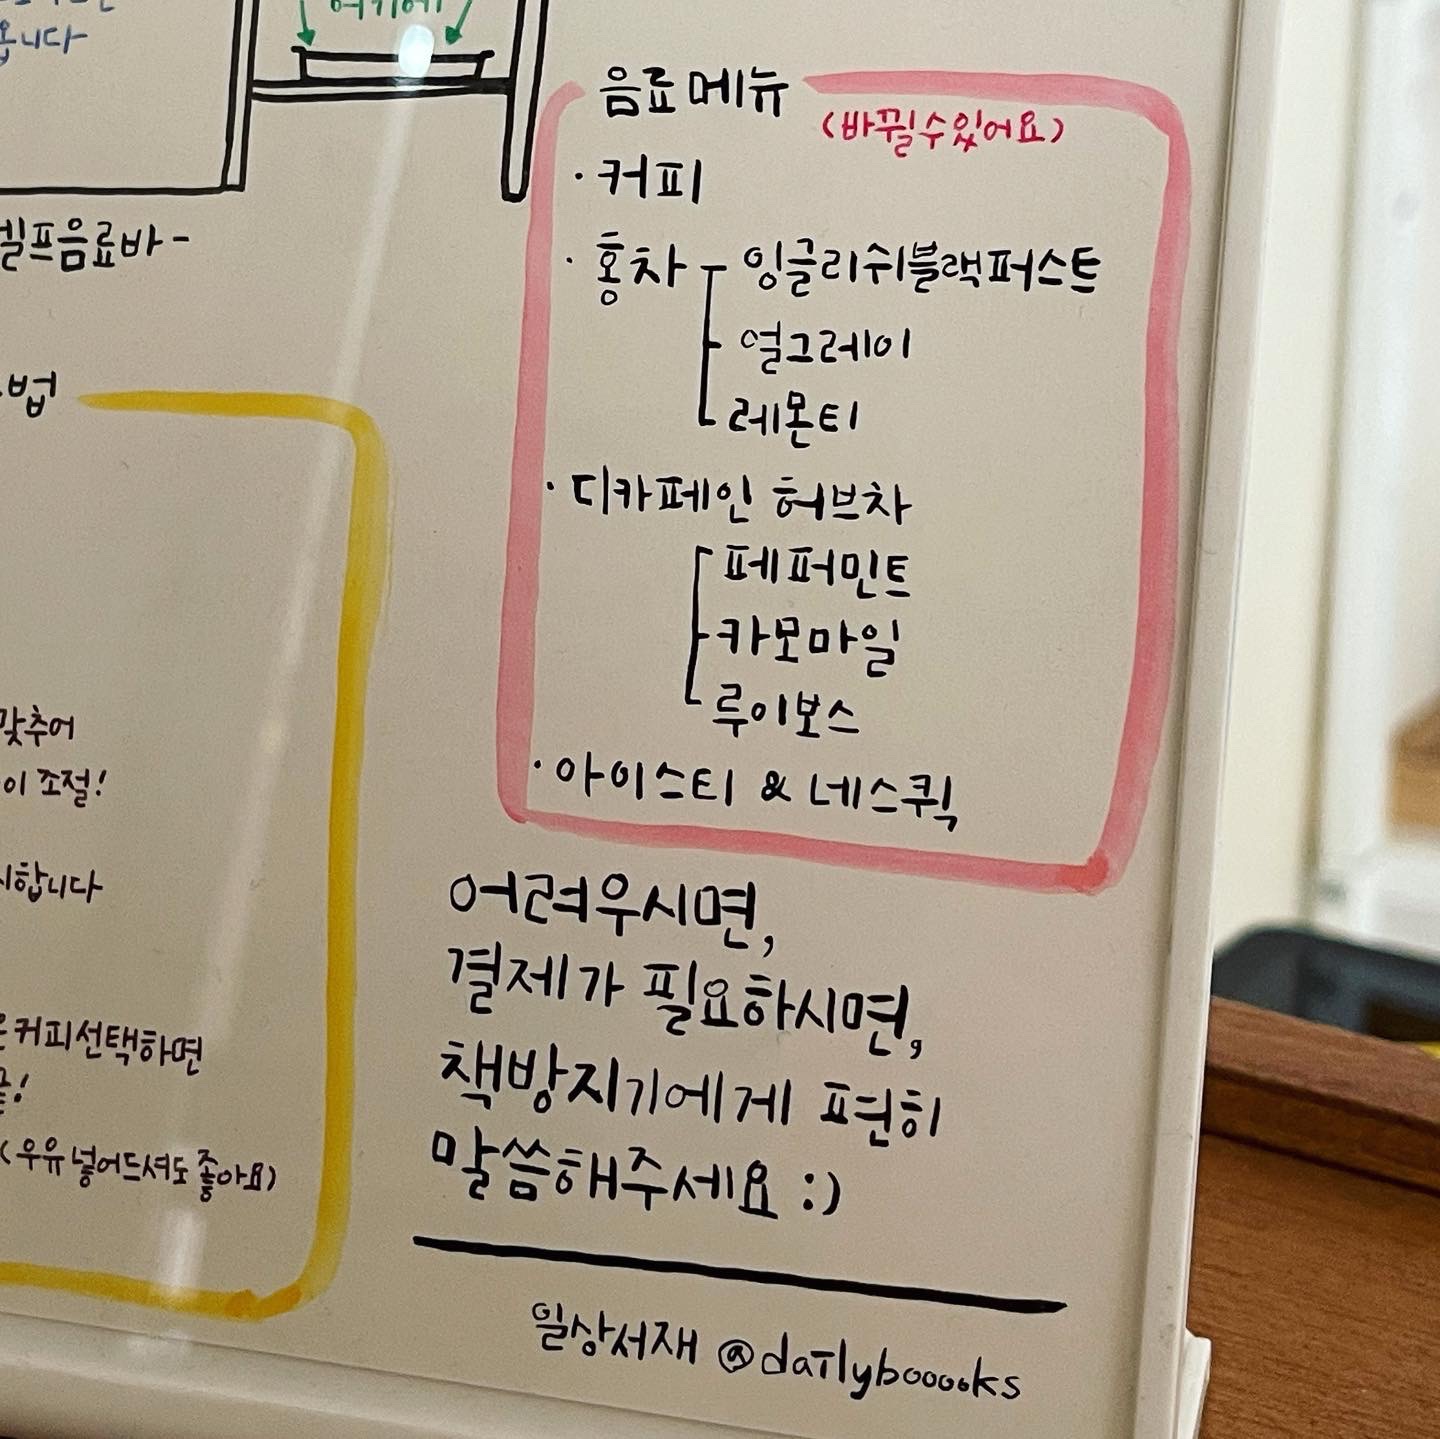 여기에
옵니다
음료메뉴
(바뀔수있어요)
· 커피
셀프음료바-
· 홍차 - 잉글리쉬블랙퍼스트
얼그레이
레몬티
법
· 디카페인 허브차
페퍼민트
카모마일
루이보스
· 아이스티 & 네스퀵
맞추어
이 조절!
시합니다
어려우시면,
결제가 필요하시면,
책방지기에게 편히
말씀해주세요 :)
커피선택하면
(우유 넣어드셔도 좋아요)
일상서재 @dailybooooks